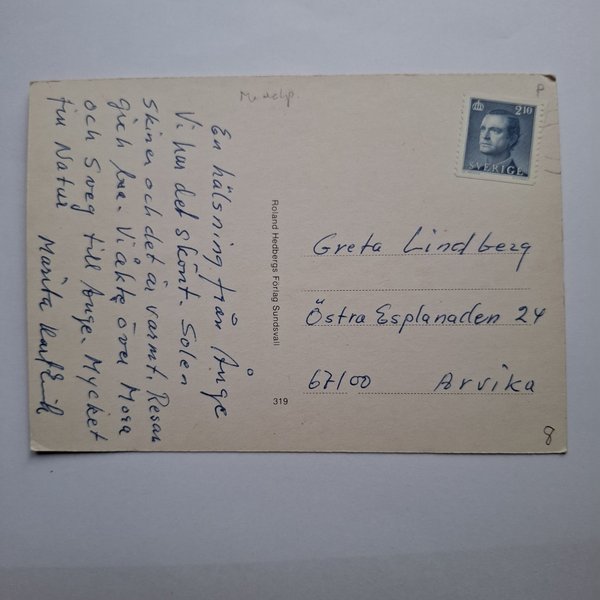 Medelp.
P
En hälsning från Ånge
Vi har det skönt. Solen
skiner och det är varmt. Resan
gick bra. Vi åkte över Mora
och Sveg till Ånge. Mycket
fin Natur
Marita Karl Erik
Roland Hedbergs Förlag Sundsvall
319
2.10
SVERIGE
Greta Lindberg
Östra Esplanaden 24
67100 Arvika
8